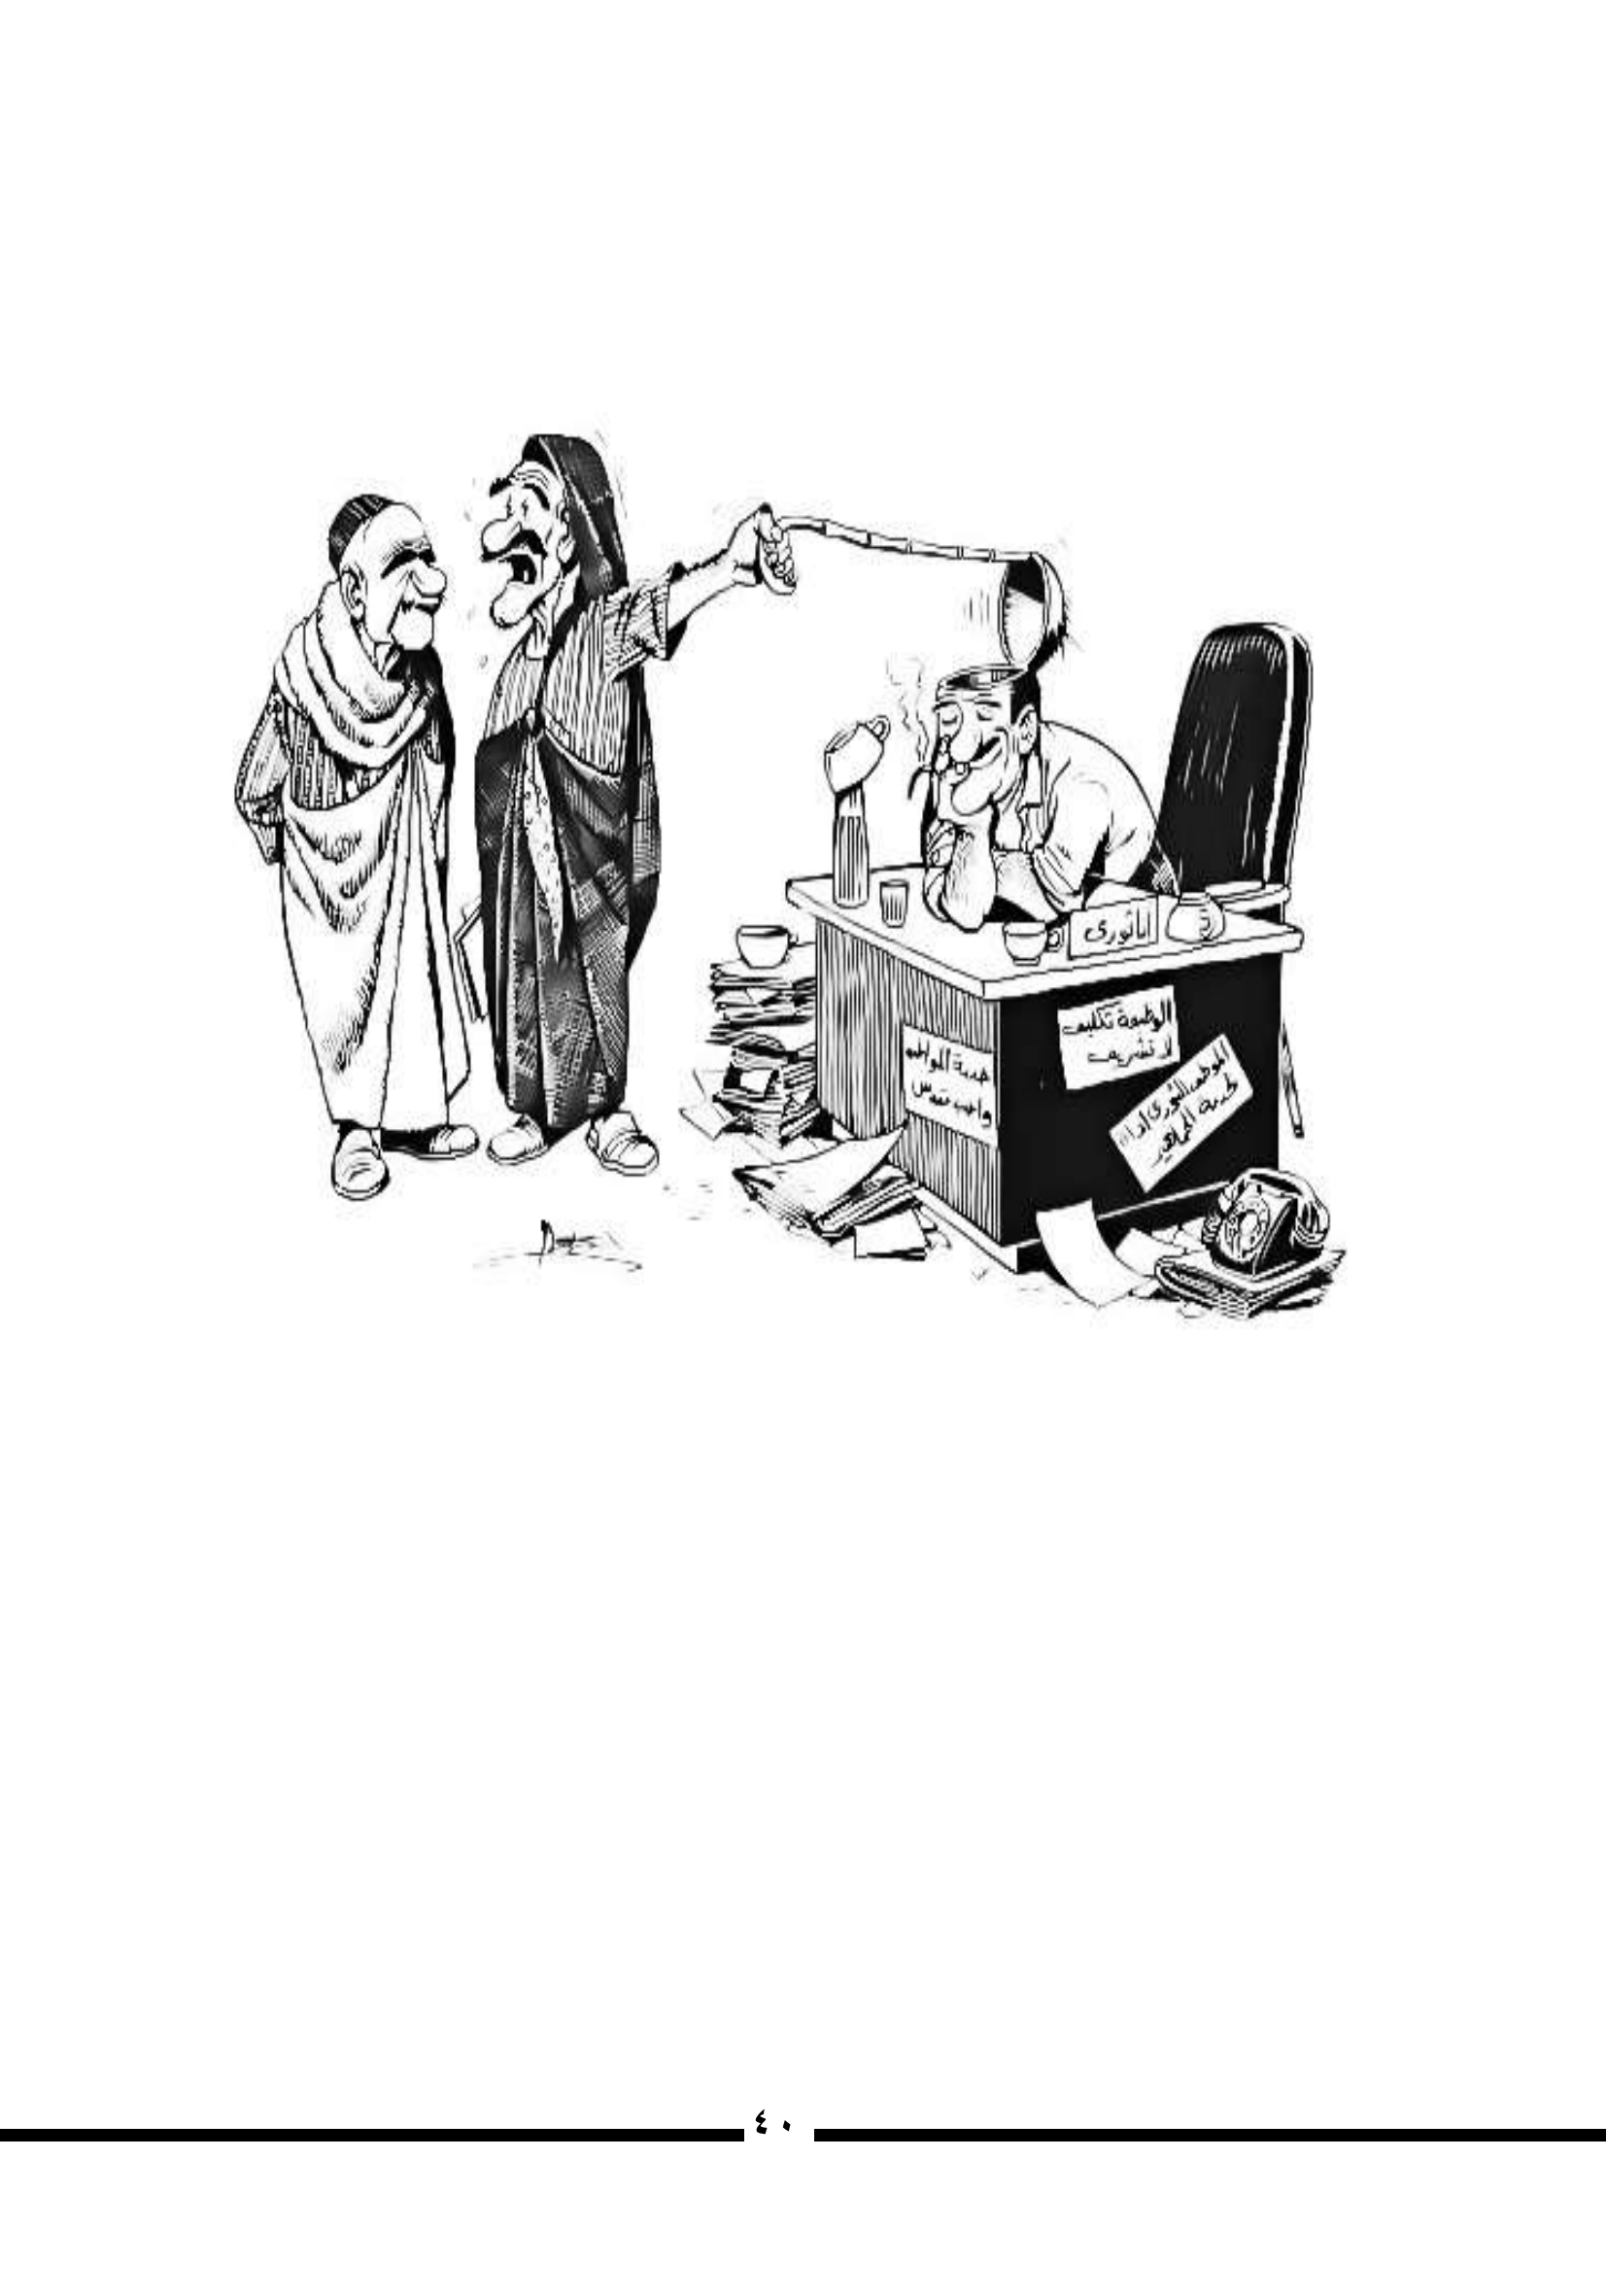 انا ثوري
الوظيفة تكليف
لا تشريف
خدمة المواطن
واجب مقدس
الموظف الثوري اداة
لخدمة الجماهير
٤٠